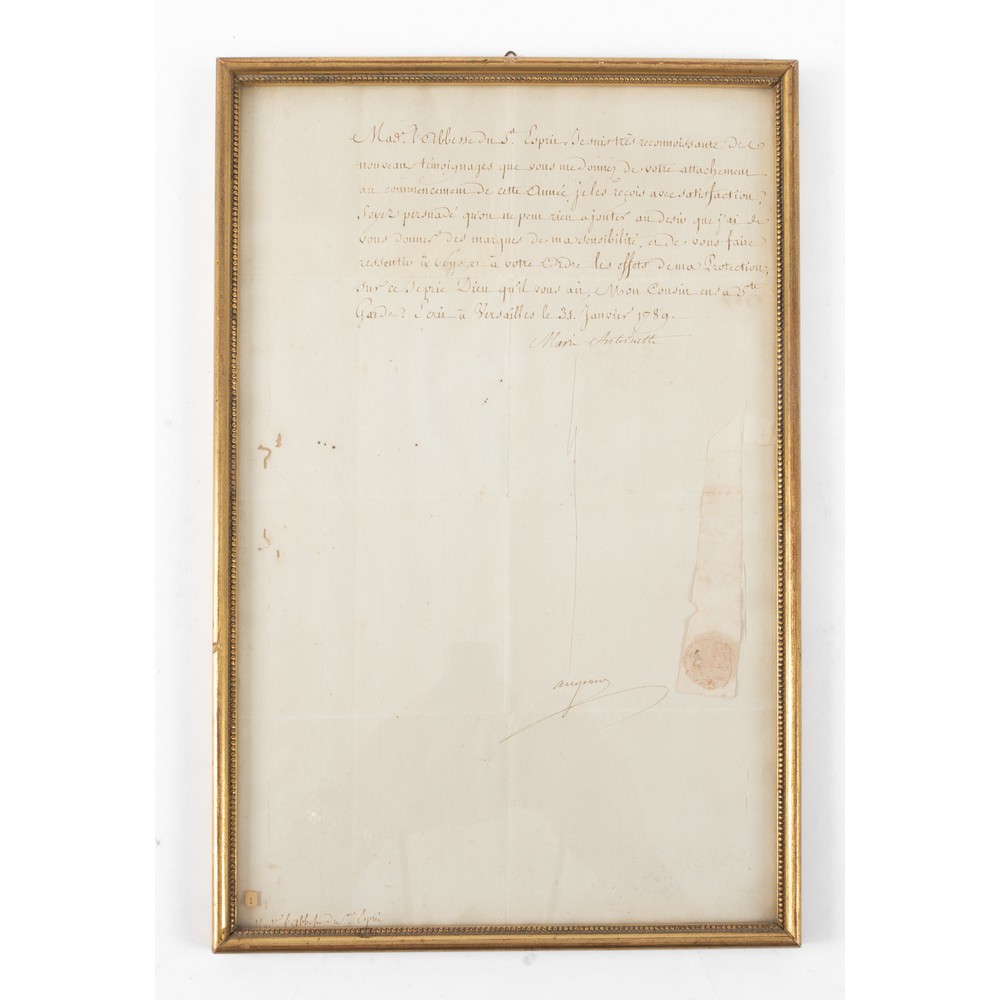 Mad.e l'Abbesse du St. Esprit. Je suis très reconnoissante de
nouveau témoignages que vous me donnéz de votre attachement
au commencement de cette Année, je les reçois avec satisfaction,
Soyez persuadé qu'on ne peut rien ajouter au desir que j'ai de
vous donner des marques de ma sensibilité, et de vous faire
ressentir à vous, et à votre Ordre les effets de ma Protection;
sur ce Je prie Dieu qu'il vous ait, Mon Cousin en sa Ste.
Garde. Ecrit à Versailles le 31. Janvier 1789.
Marie Antoinette
augeard
1
l'Abbesse du St. Esprit